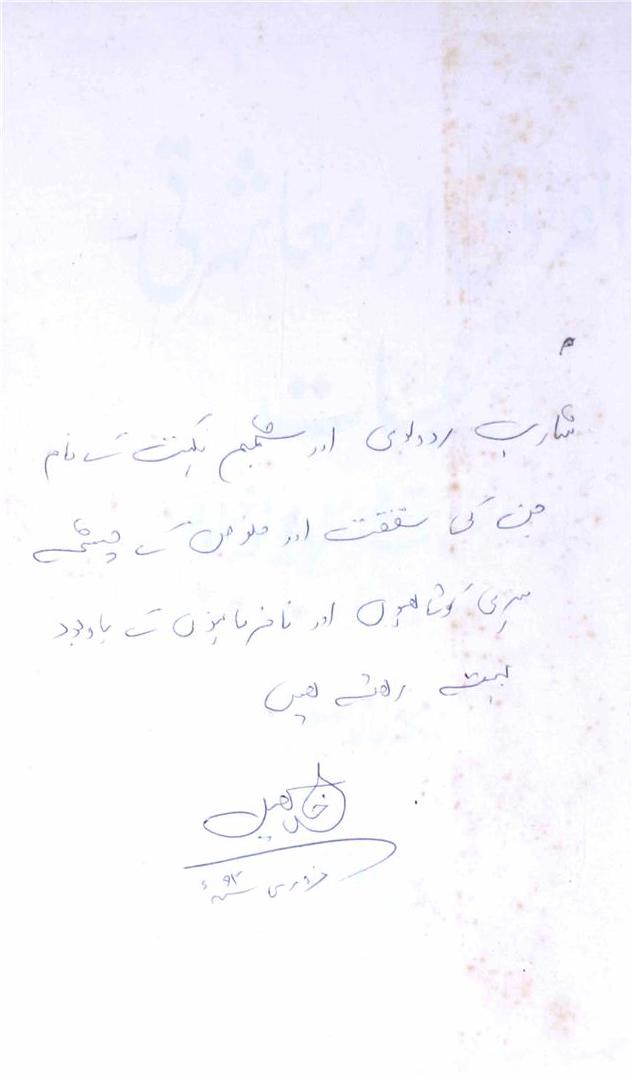 شارب ردولوی اور شمیم نکہت کے نام
جن کی شفقت اور خلوص کے چشمے
میری کوتاہیوں اور نافرمانیوں کے باوجود
بہتے رہتے ہیں
فروری ۹۲ء